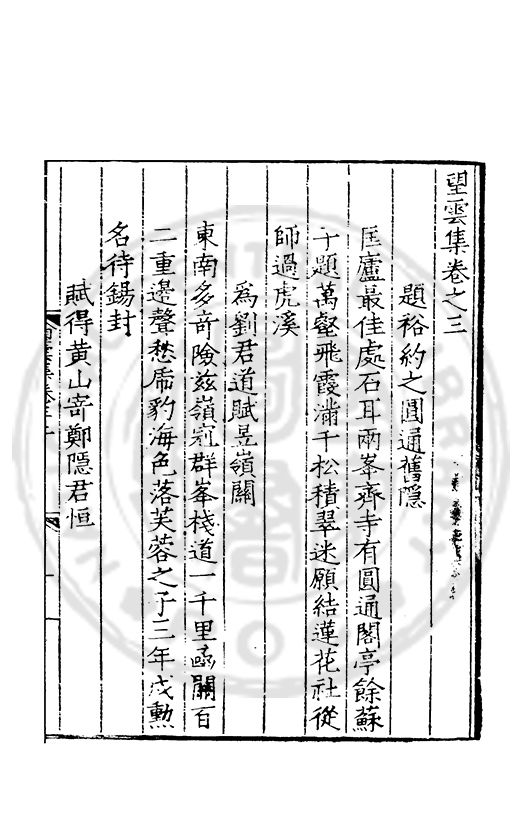 望雲集卷之三
題裕約之圓通舊隱
匡廬最佳處石耳兩峯齊寺有圓通閣亭餘蘇
子題萬壑飛霞滿千松積翠迷願結蓮花社從
師過虎溪
為劉君道賦昱嶺關
東南多奇險茲嶺冠群峯棧道一千里函關百
二重邊聲愁虎豹海色落芙蓉之子三年戍勳
名待錫封
賦得黃山寄鄭隱君恒